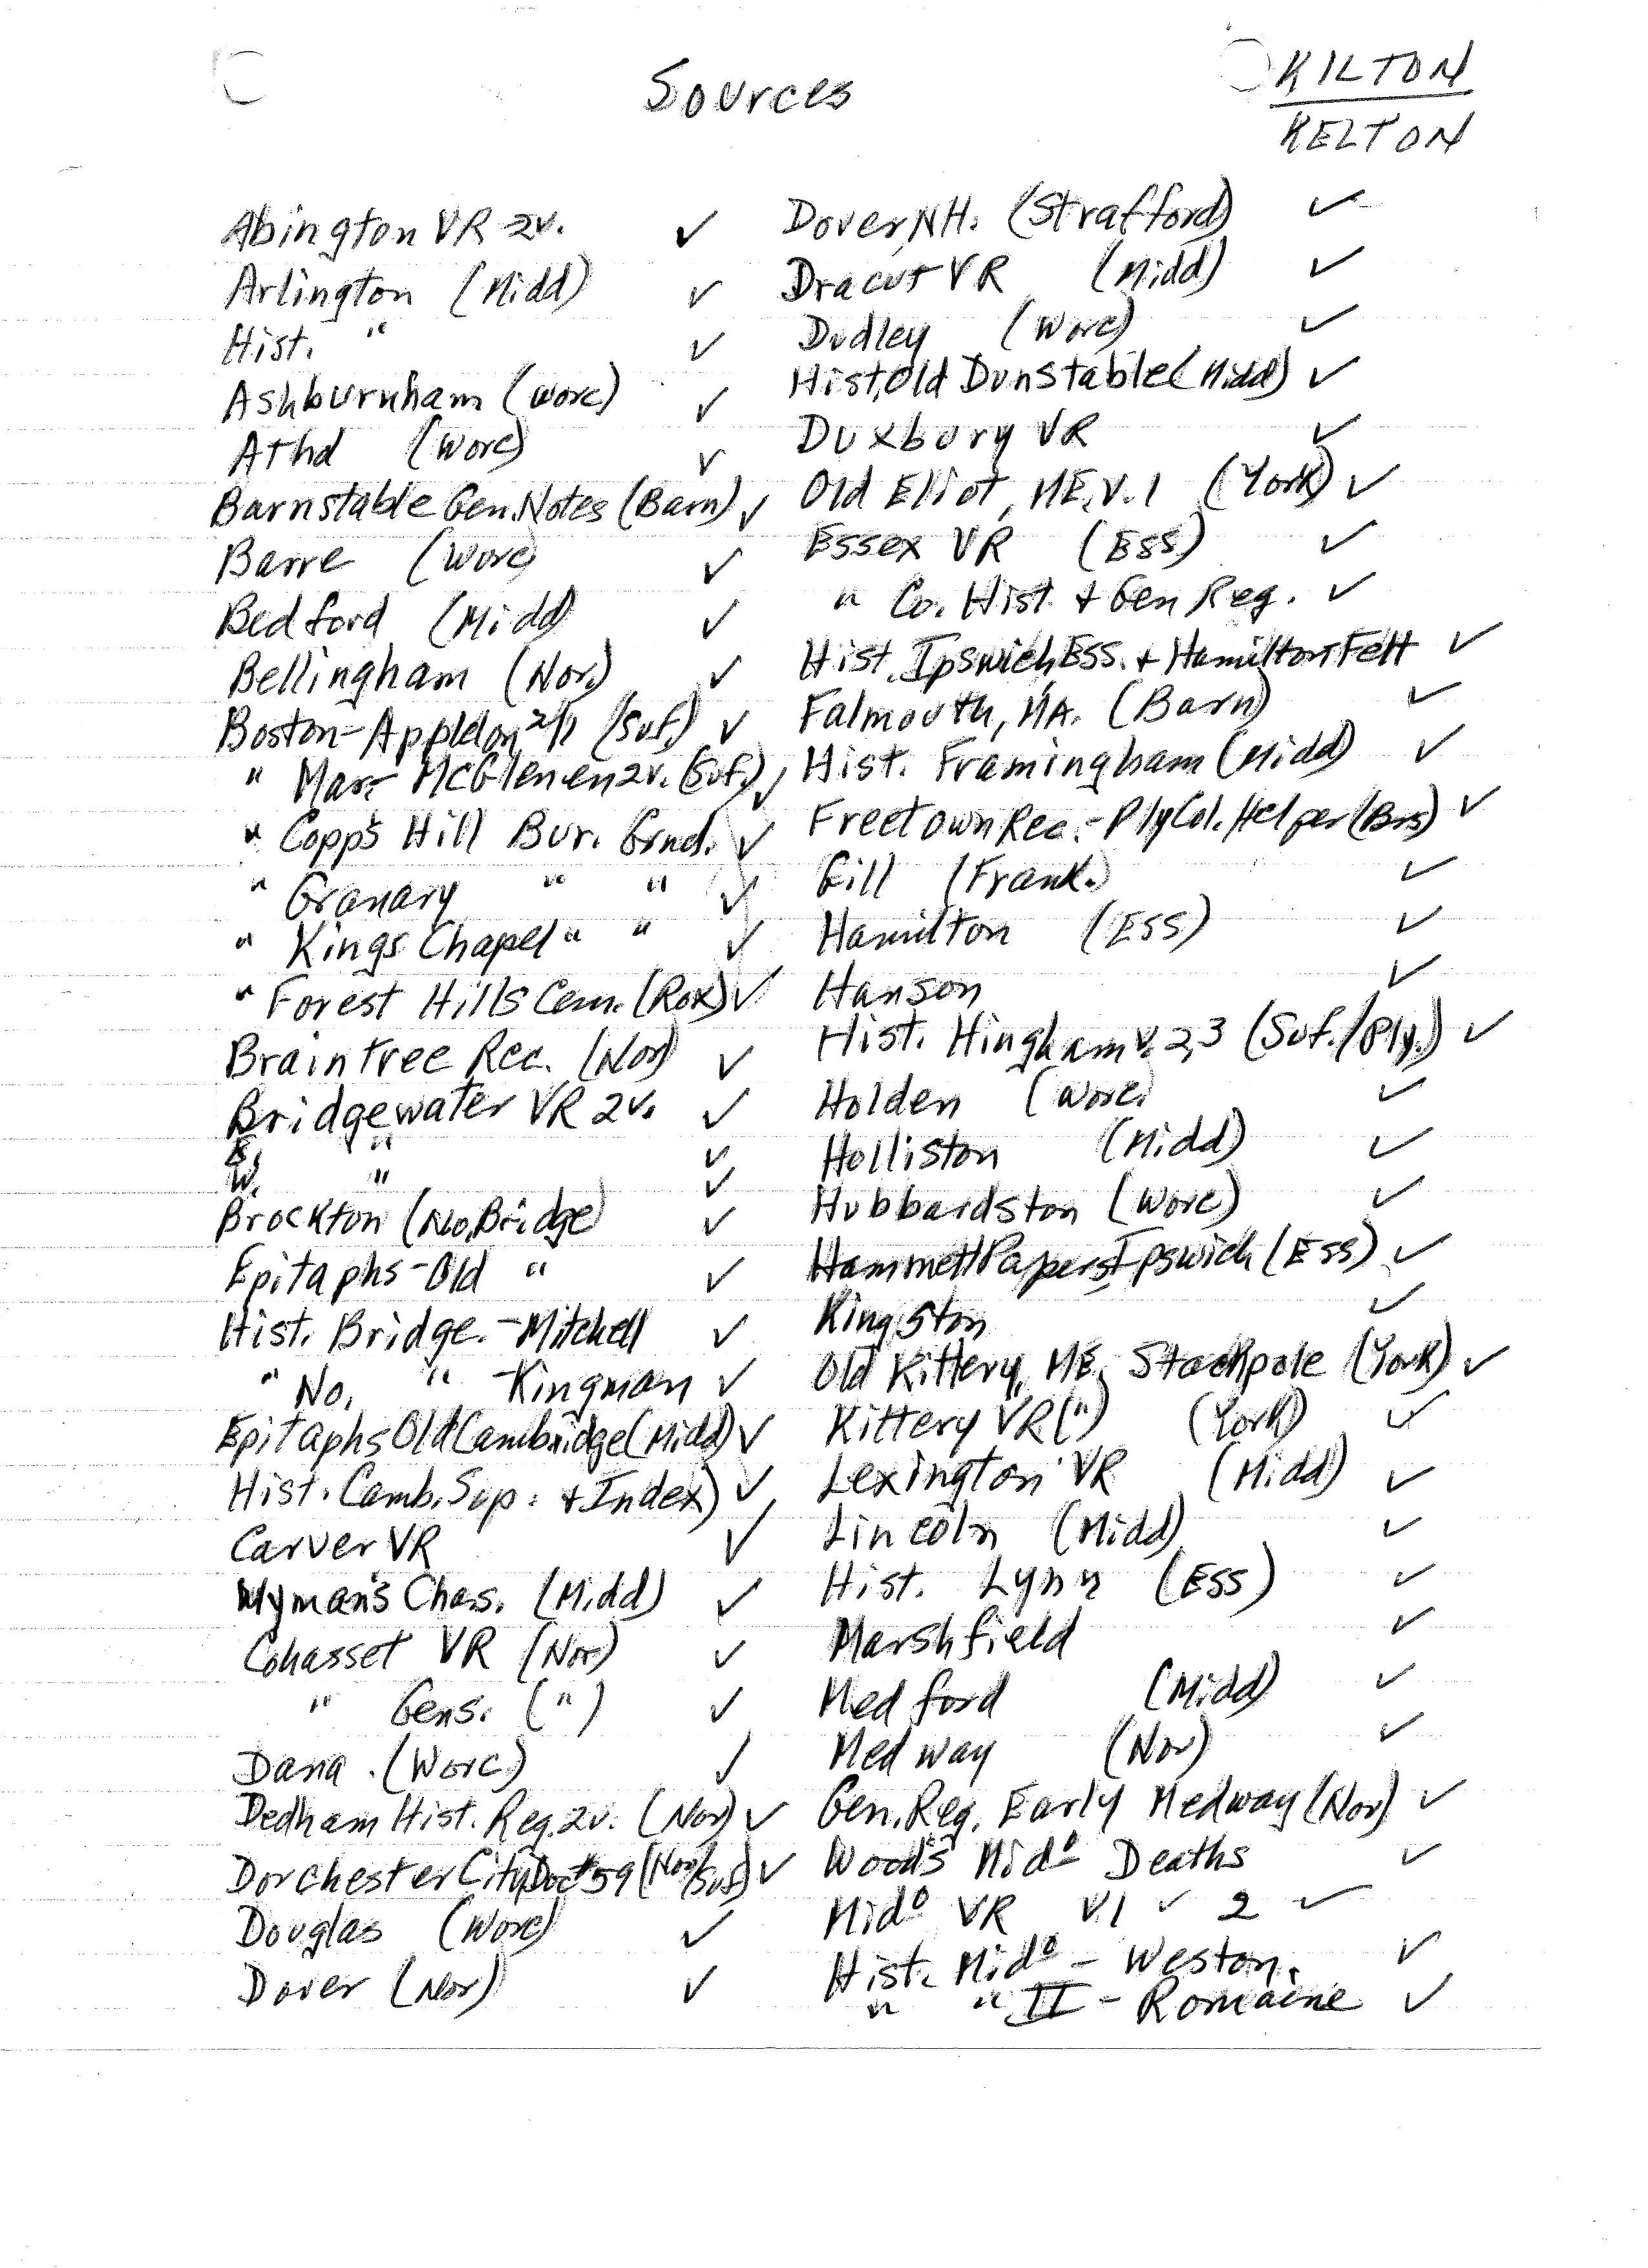 Sources
KILTON
KELTON
Abington VR 2v. ✓
Arlington (Midd) ✓
Hist. " ✓
Ashburnham (Worc) ✓
Athol (Worc) ✓
Barnstable Gen. Notes (Barn) ✓
Barre (Worc) ✓
Bedford (Midd) ✓
Bellingham (Nor.) ✓
Boston - Appleton, 2/1 (Suf.) ✓
" Mar - McGlenen 2v. (Suf.) ✓
" Copp's Hill Bur. Grnd. ✓
" Granary " " ✓
" Kings Chapel " " ✓
" Forest Hills Cem. (Rox) ✓
Braintree Rec. (Nor) ✓
Bridgewater VR 2v. ✓
E. " ✓
W. " ✓
Brockton (No. Bridge) ✓
Epitaphs - Old " ✓
Hist. Bridge. - Mitchell ✓
" No. " - Kingman ✓
Epitaphs Old Cambridge (Midd) ✓
Hist. Camb. Sup. + Index) ✓
Carver VR ✓
Wyman's Chas. (Midd) ✓
Cohasset VR (Nor) ✓
" Gens. (") ✓
Dana. (Worc.) ✓
Dedham Hist. Reg. 2v. (Nor) ✓
Dorchester City Doc #59 (Nor/Suf) ✓
Douglas (Worc) ✓
Dover (Nor) ✓
Dover, NH. (Strafford) ✓
Dracut VR (Midd) ✓
Dudley (Worc) ✓
Hist. Old Dunstable (Midd) ✓
Duxbury VR ✓
Old Eliot, ME, V.1 (York) ✓
Essex VR (Ess) ✓
" Co. Hist. + Gen Reg. ✓
Hist. Ipswich, Ess. + Hamilton, Felt ✓
Falmouth, MA. (Barn) ✓
Hist. Framingham (Midd) ✓
Freetown Rec. - Ply Col. Helper (Brs) ✓
Gill (Frank.) ✓
Hamilton (Ess) ✓
Hanson ✓
Hist. Hingham v. 2,3 (Suf./Ply.) ✓
Holden (Worc) ✓
Holliston (Midd) ✓
Hubbardston (Worc) ✓
Hammett Papers, Ipswich (Ess) ✓
Kingston ✓
Old Kittery, ME, Stackpole (York) ✓
Kittery VR (") (York) ✓
Lexington VR (Midd) ✓
Lincoln (Midd) ✓
Hist. Lynn (Ess) ✓
Marshfield ✓
Medford (Midd) ✓
Medway (Nor) ✓
Gen. Reg. Early Medway (Nor) ✓
Wood's Mid⁰ Deaths ✓
Mid⁰ VR V.1 ✓ 2 ✓
Hist. Mid⁰ - Weston. ✓
" " II - Romaine ✓